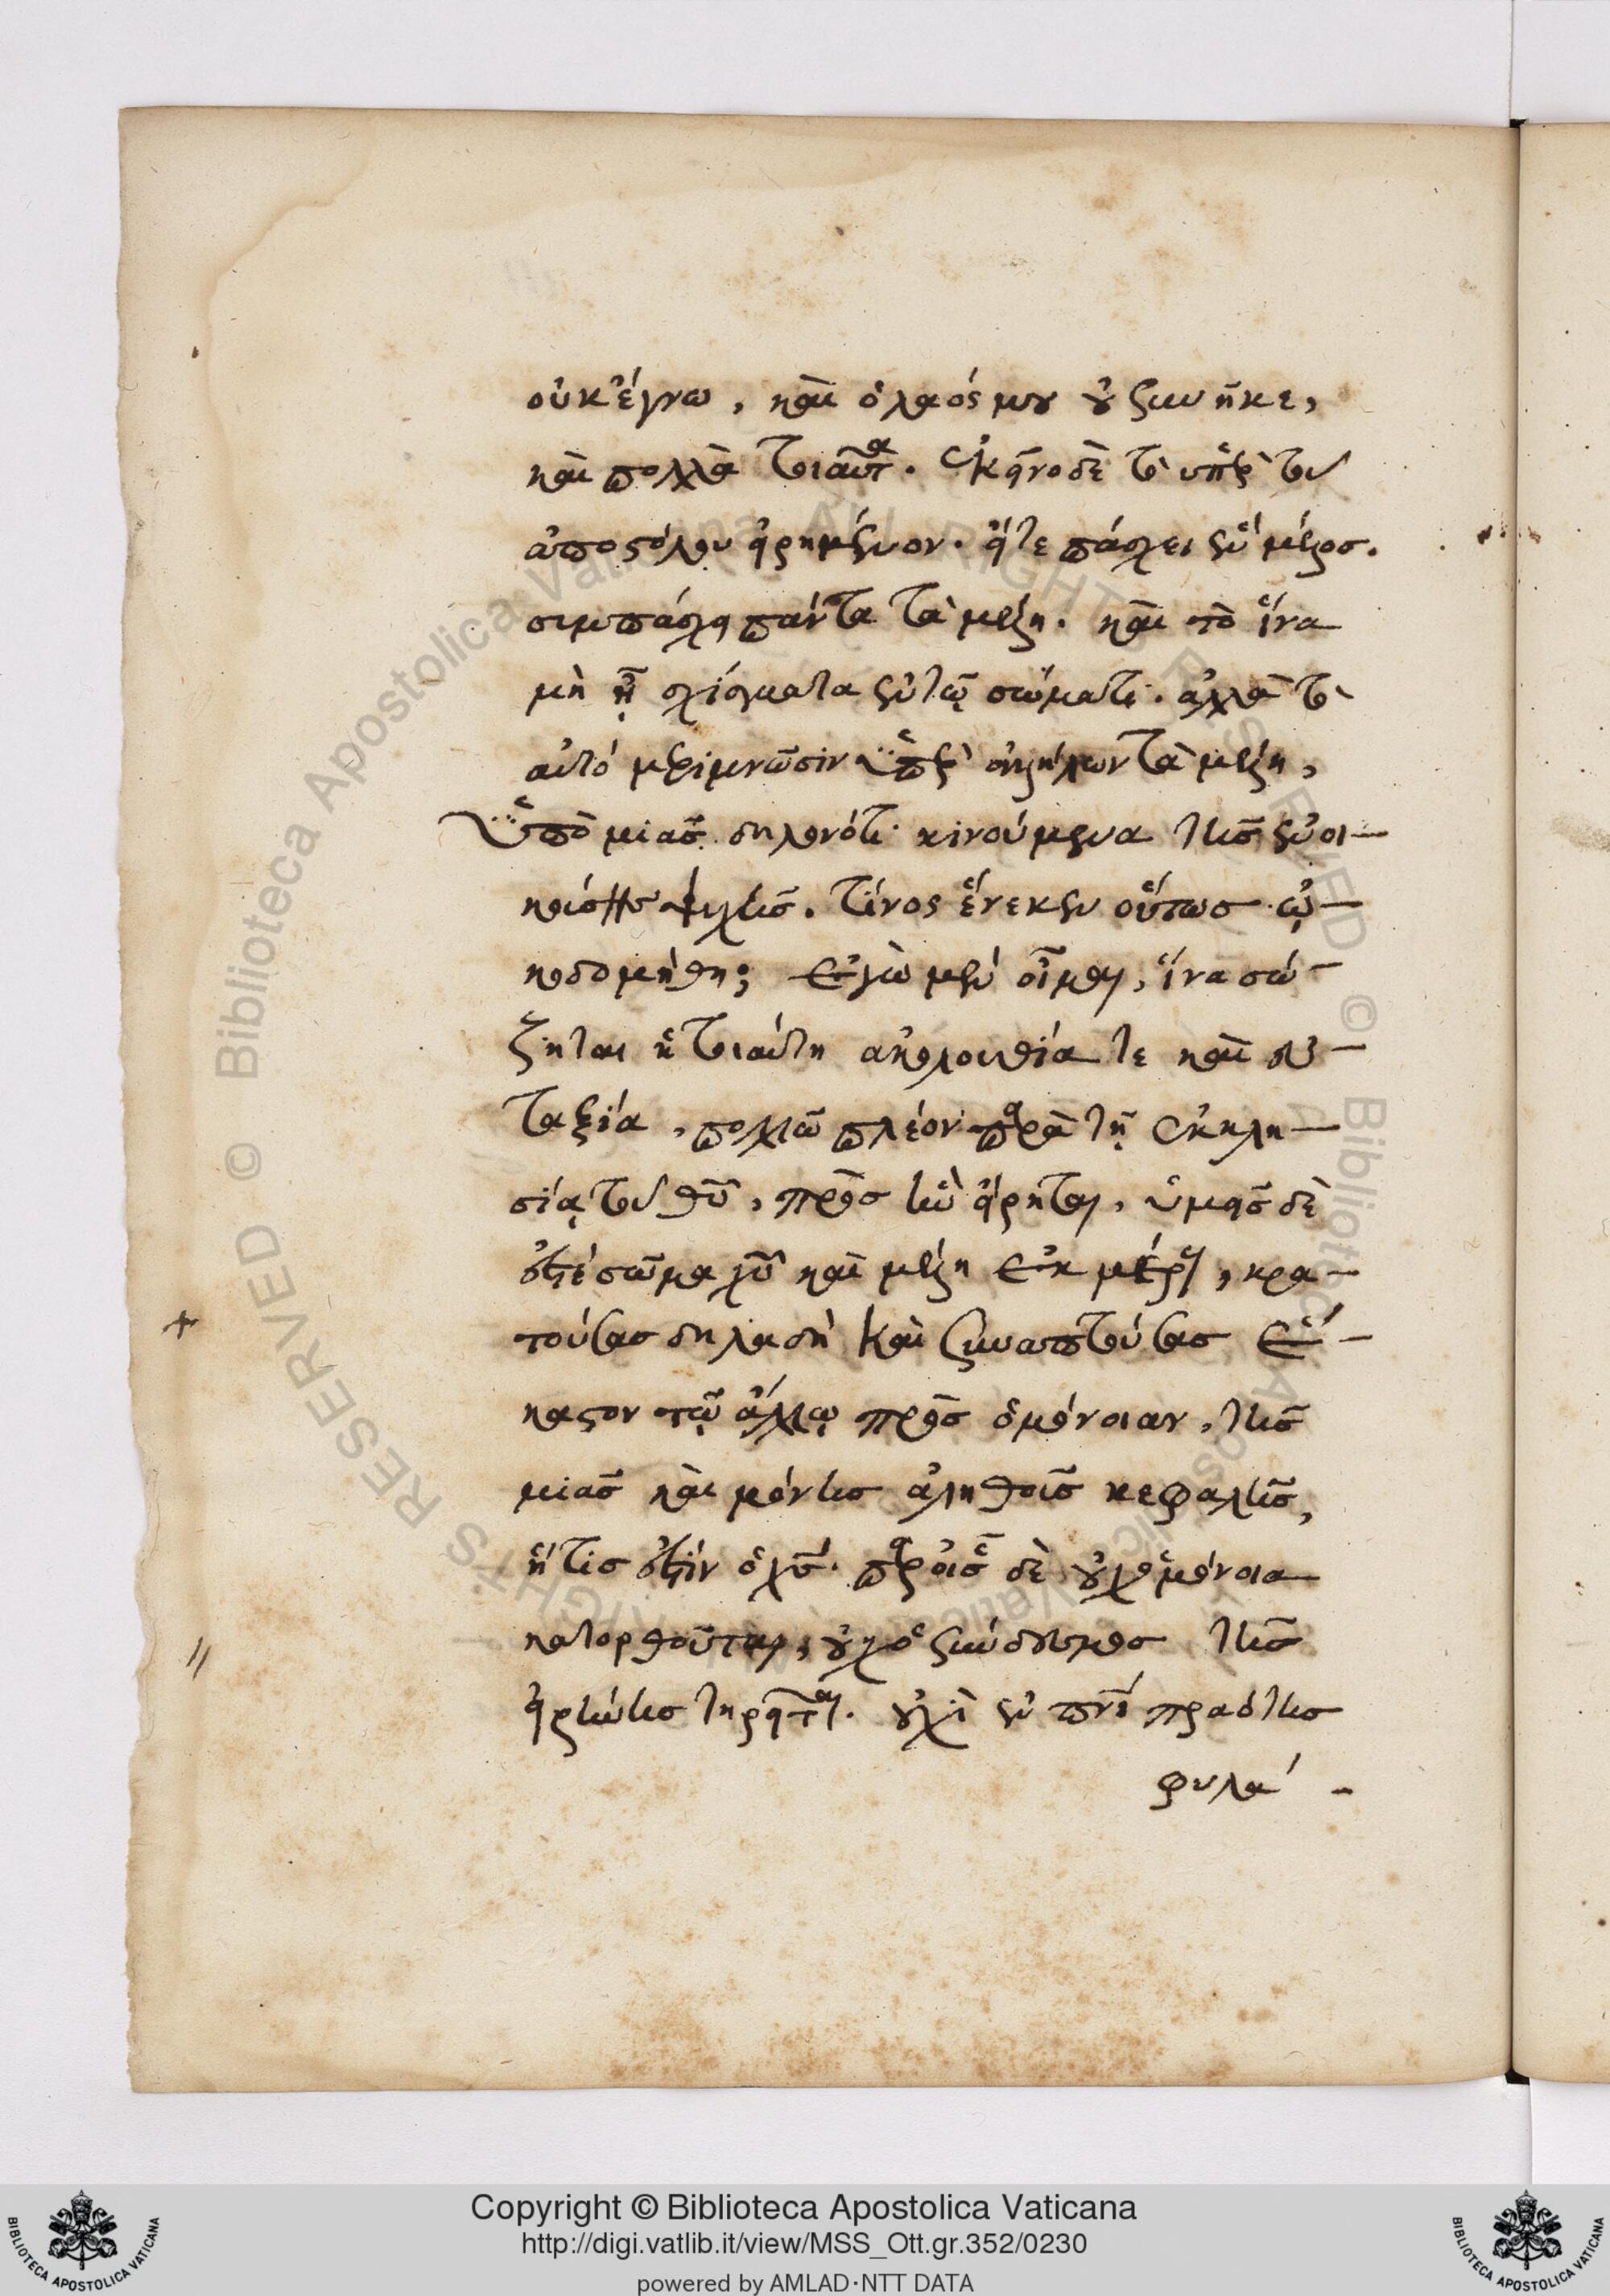 οὐκ ἔγνω, καὶ ὁ λαός μου οὐ συνῆκε,
καὶ πολλὰ τοιαῦτα. ἐκεῖνο δὲ τὸ ὑπὲρ τοῦ
ἀποστόλου εἰρημένον. εἴτε πάσχει ἓν μέλος.
συμπάσχει πάντα τὰ μέλη. καὶ τὸ ἵνα
μὴ ᾖ σχίσματα ἐν τῷ σώματι. ἀλλὰ τὸ
αὐτό μεριμνῶσιν ὑπὲρ ἀλλήλων τὰ μέλη,
ὑπὸ μιᾶς δηλονότι κινούμενα τῆς ἐνοι-
κούσης ψυχῆς. τίνος ἕνεκεν οὕτως ᾠ-
κοδομήθη; ἐγὼ μὲν οἶμαι, ἵνα σώ-
ζηται ἡ τοιαύτη ἀκολουθία τε καὶ εὐ-
ταξία, πολλῷ πλέον παρὰ τῇ ἐκκλη-
σίᾳ τοῦ θῦ, πρὸς ἣν εἴρηται, ὑμεῖς δὲ
ἐστέ σῶμα χῦ καὶ μέλη ἐκ μέρους, κρα-
τούσης δηλαδὴ καὶ συναπτούσης ἕ-
καστον τῷ ἄλλῳ πρὸς ὁμόνοιαν, τῆς
μιᾶς καὶ μόνης ἀληθοῦς κεφαλῆς,
ἥτις ἐστὶν ὁ χς. παρ' οἷς δὲ οὐχ ὁμόνοια
κατορθοῦται, οὐχ ὁ σύνδεσμος τῆς
εἰρήνης τηρεῖται. οὐχὶ ἐν πνι πραότης
φυλά-